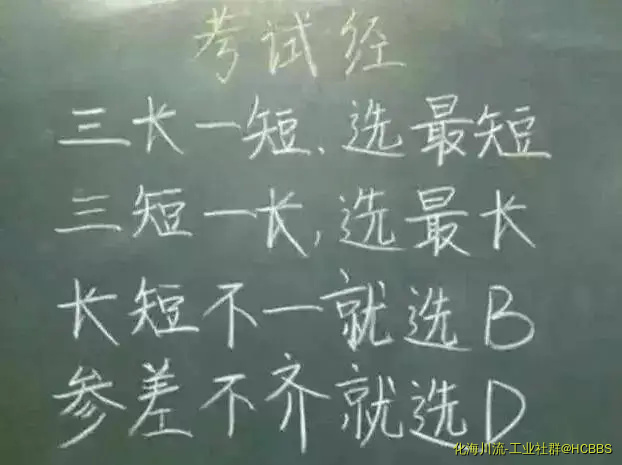 考试经
三长一短、选最短
三短一长,选最长
长短不一就选B
参差不齐就选D
化海川流-工业社群@HCBBS